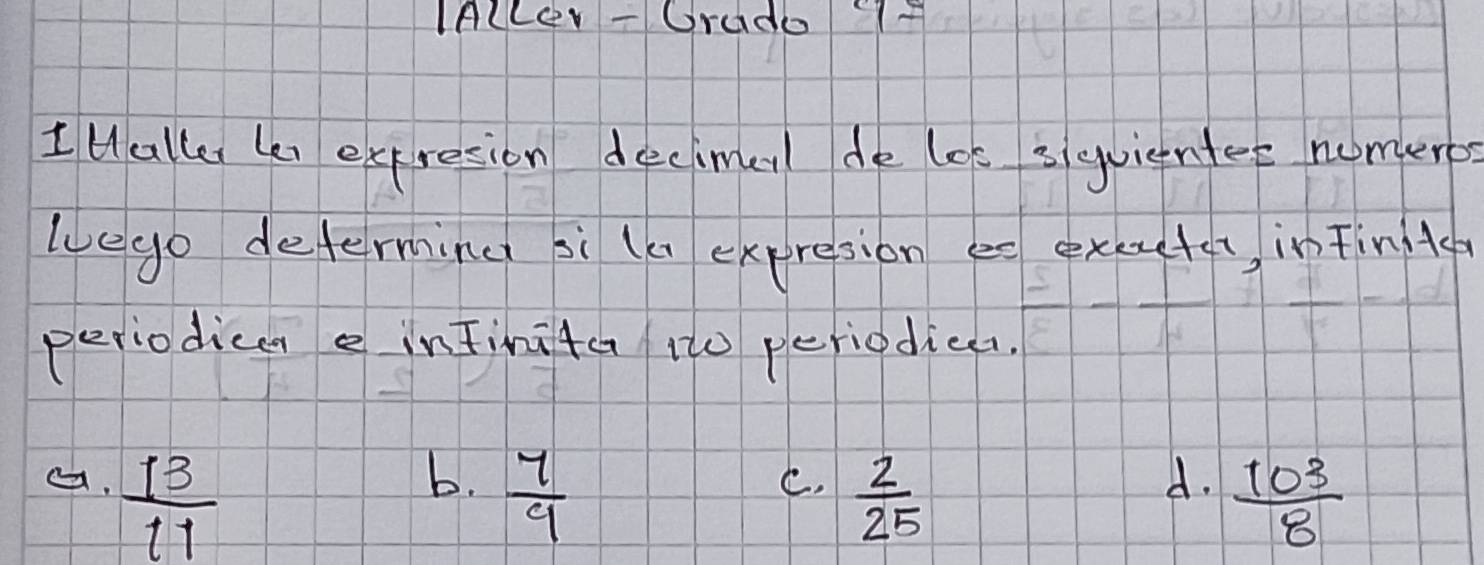 Taller - Grado
I Halla la expresion decimal de los siguientes numeros
luego determina si la expresion es exacta, infinita
periodica e infinita no periodica.
a. 13/11 b. 7/9 c. 2/25 d. 103/8